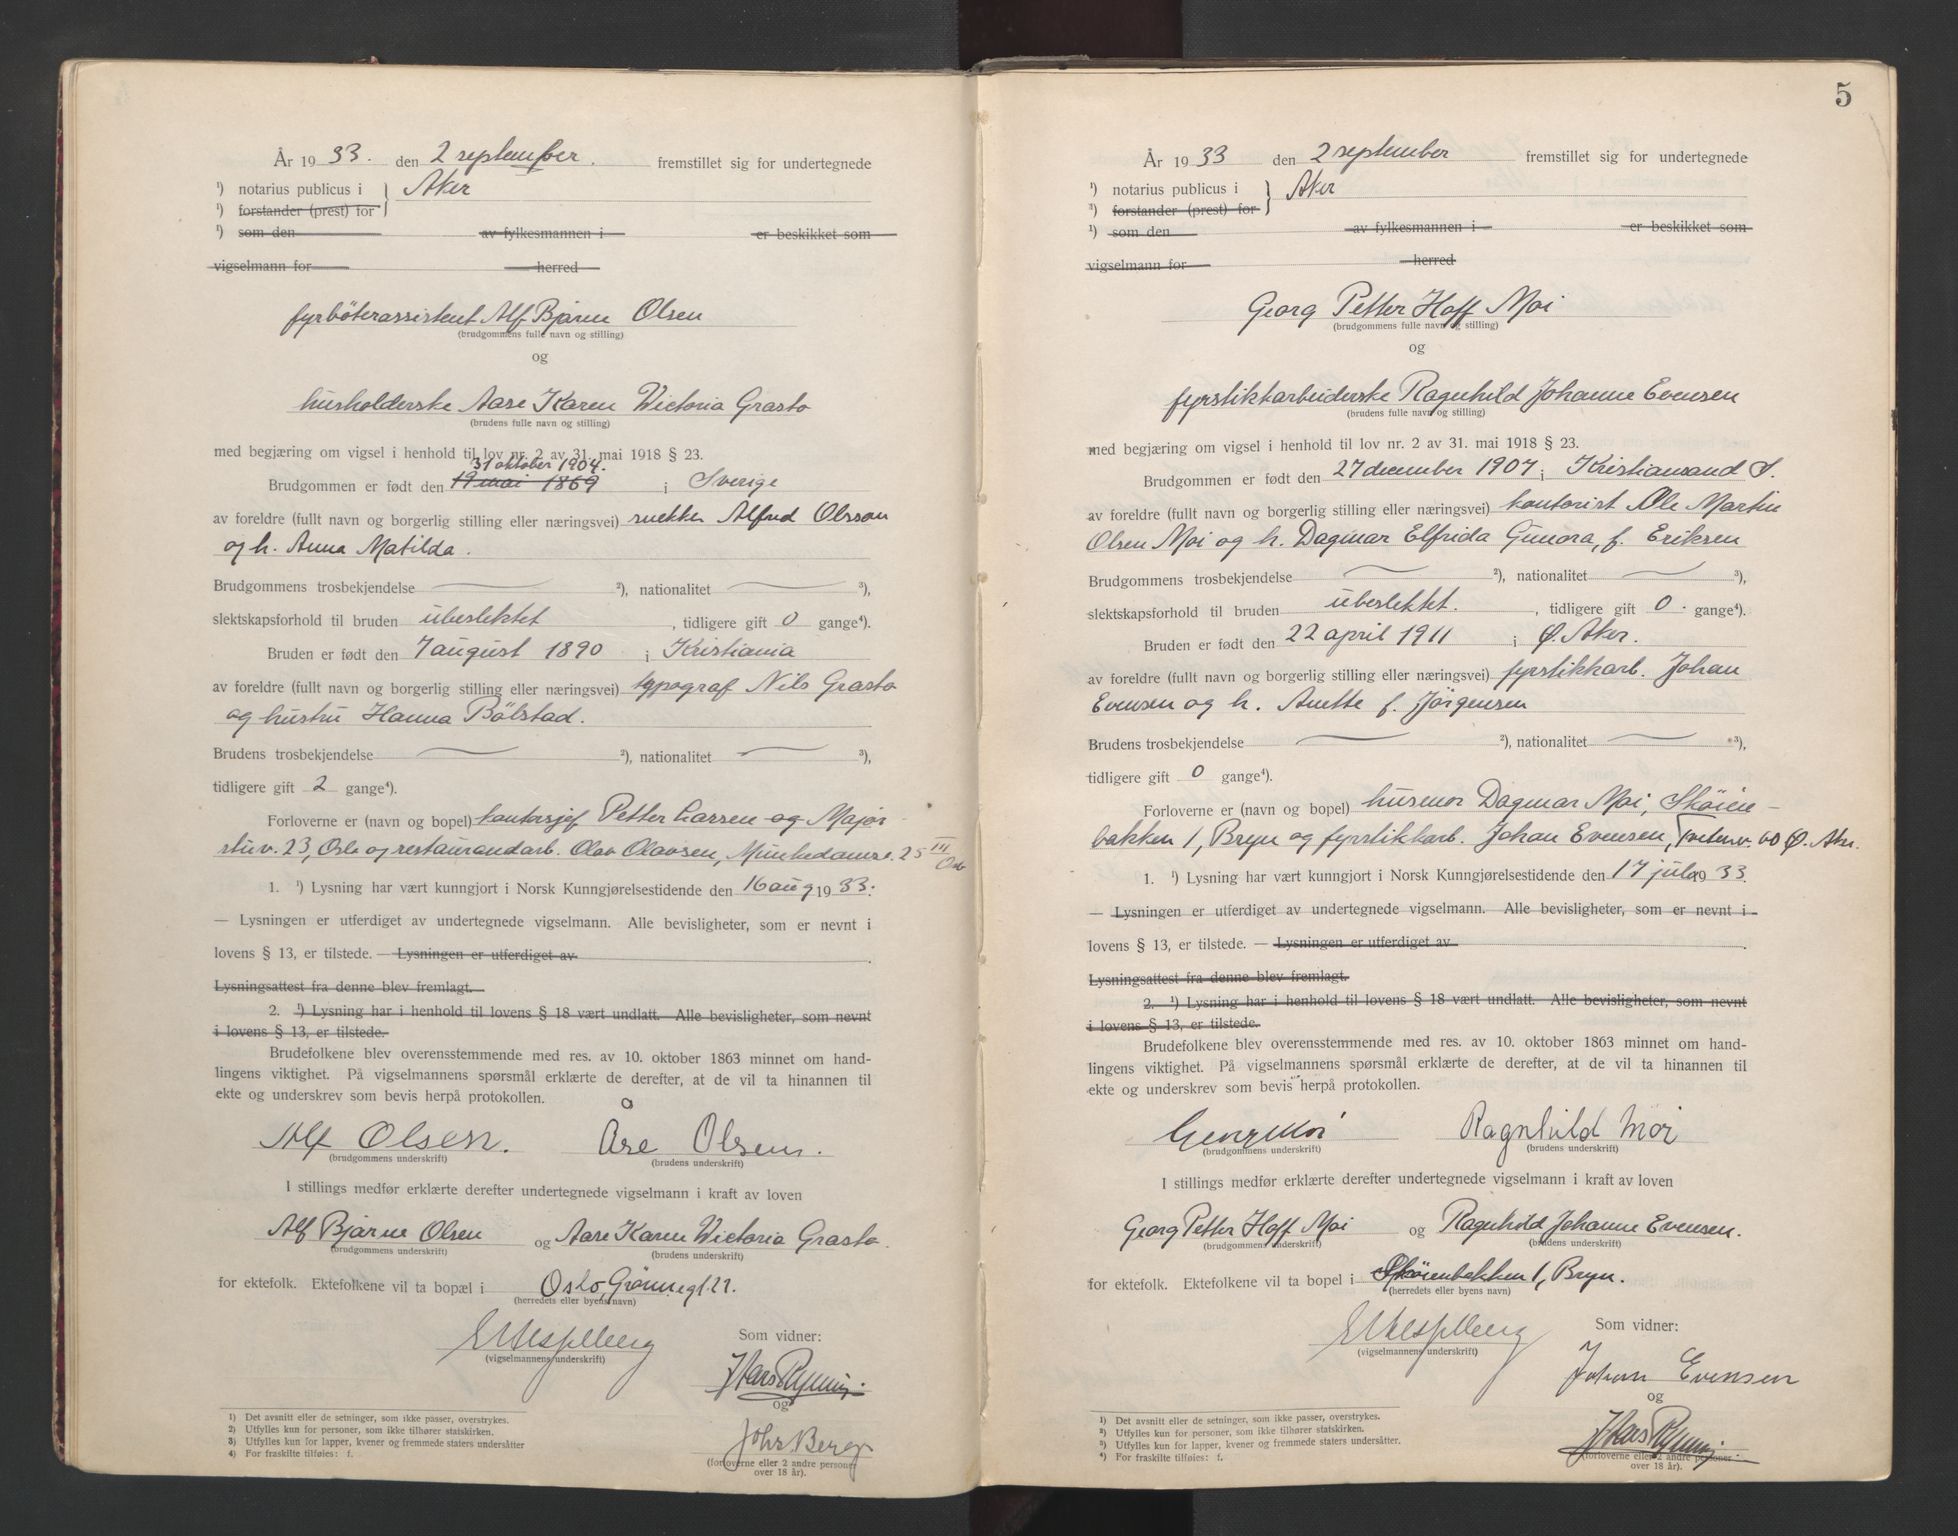 År 1933. den 2 september. fremstillet sig for undertegnede
¹) notarius publicus i } Aker
¹) forstander (prest) for
¹) som den av fylkesmannen i er beskikket som
vigselmann for herred
fyrböterassistent Alf Bjarne Olsen
(brudgommens fulle navn og stilling)
og
husholderske Aase Karen Victoria Grasto
(brudens fulle navn og stilling)
med begjæring om vigsel i henhold til lov nr. 2 av 31. mai 1918 § 23.
31 oktober 1904.
Brudgommen er født den 19 mai 1869 i Sverige
av foreldre (fullt navn og borgerlig stilling eller næringsvei) snekker Alfred Olsson
og h. Anna Matilda.
Brudgommens trosbekjendelse — ²), nationalitet — ³),
slektskapsforhold til bruden ubeslektet, tidligere gift 0 gange⁴).
Bruden er født den 7 august 1890 i Kristiania
av foreldre (fullt navn og borgerlig stilling eller næringsvei) typograf Nils Grasto
og hustru Hanna Bölstad.
Brudens trosbekjendelse — ²), nationalitet — ³),
tidligere gift 2 gange⁴).
Forloverne er (navn og bopel) kontorsjef Petter Larsen og Major
stuv. 23, Oslo og restaurandarb. Olav Olavsen, Munkedamsv. 25 III
Oslo
1. ¹) Lysning har vært kunngjort i Norsk Kunngjørelsestidende den 16 aug 1933.
— Lysningen er utferdiget av undertegnede vigselmann. Alle bevisligheter, som er nevnt i
lovens § 13, er tilstede. — Lysningen er utferdiget av
Lysningsattest fra denne blev fremlagt.
2. ¹) Lysning har i henhold til lovens § 18 vært undlatt. Alle bevisligheter, som nevnt
i lovens § 13, er tilstede.
Brudefolkene blev overensstemmende med res. av 10. oktober 1863 minnet om hand-
lingens viktighet. På vigselmannens spørsmål erklærte de derefter, at de vil ta hinannen til
ekte og underskrev som bevis herpå protokollen.
Alf Olsen. Åse Olsen.
(brudgommens underskrift) (brudens underskrift)
I stillings medfør erklærte derefter undertegnede vigselmann i kraft av loven
Alf Bjarne Olsen og Aase Karen Victoria Grasto.
(brudgommens underskrift) (brudens underskrift)
for ektefolk. Ektefolkene vil ta bopæl i Oslo,
(herredets eller byens navn)
Som vidner:
(vigselmannens underskrift)
Hans Ryning
og
Johs Berg
(forloverne eller 2 andre personer
over 18 år).
1) Det avsnitt eller de setninger, som ikke passer, overstrykes.
2) Utfylles kun for personer, som ikke tilhører statskirken.
3) Utfylles kun for lapper, kvener og fremmede staters undersåtter
4) For fraskilte tilføies: f.
5
År 1933 den 2 september fremstillet sig for undertegnede
¹) notarius publicus i } Aker
²) forstander (prest) for
¹) som den av fylkesmannen i er beskikket som
vigselmann for herred
Georg Petter Hoff Moi
(brudgommens fulle navn og stilling)
og
fyrstiktarbeiderske Ragnhild Johanne Evensen
(brudens fulle navn og stilling)
med begjæring om vigsel i henhold til lov nr. 2 av 31. mai 1918 § 23.
Brudgommen er født den 27 december 1907 i Kristiansand S.
av foreldre (fullt navn og borgerlig stilling eller næringsvei) kontorist Ole Martin
Olsen Moi og h. Dagmar Elfrida Gunora, f. Eriksen
Brudgommens trosbekjendelse — ²), nationalitet — ³),
slektskapsforhold til bruden ubeslektet., tidligere gift 0. gange⁴).
Bruden er født den 22 april 1911 i Ø. Aker.
av foreldre (fullt navn og borgerlig stilling eller næringsvei) fyrstikkarb. Johan
Evensen og h. Anette f. Jørgensen
Brudens trosbekjendelse — ²), nationalitet — ³),
tidligere gift 0 gange⁴).
Forloverne er (navn og bopel) husmor Dagmar Moi, Skőien-
bakken 1, Bryn og fyrstikkarb. Johan Evensen, 60 Ø. Aker.
1. ¹) Lysning har vært kunngjort i Norsk Kunngjørelsestidende den 17 juli 1933.
— Lysningen er utferdiget av undertegnede vigselmann. Alle bevisligheter, som er nevnt i
lovens § 13, er tilstede. — Lysningen er utferdiget av
Lysningsattest fra denne blev fremlagt.
2. ¹) Lysning har i henhold til lovens § 18 vært undlatt. Alle bevisligheter, som nevnt
i lovens § 13, er tilstede.
Brudefolkene blev overensstemmende med res. av 10. oktober 1863 minnet om hand-
lingens viktighet. På vigselmannens spørsmål erklærte de derefter, at de vil ta hinannen til
ekte og underskrev som bevis herpå protokollen.
Georg Moi Ragnhild Moi
(brudgommens underskrift) (brudens underskrift)
I stillings medfør erklærte derefter undertegnede vigselmann i kraft av loven
Georg Petter Hoff Moi og Ragnhild Johanne Evensen.
(brudgommens underskrift) (brudens underskrift)
for ektefolk. Ektefolkene vil ta bopel i Skőienbakken 1, Bryn.
(herredets eller byens navn)
Som vidner:
(vigselmannens underskrift)
Johan Evensen
og
Hans Ryning
(forloverne eller 2 andre personer
over 18 år).
1) Det avsnitt eller de setninger, som ikke passer, overstrykes.
2) Utfylles kun for personer, som ikke tilhører statskirken.
3) Utfylles kun for lapper, kvener og fremmede staters undersåtter.
4) For fraskilte tilføies: f.